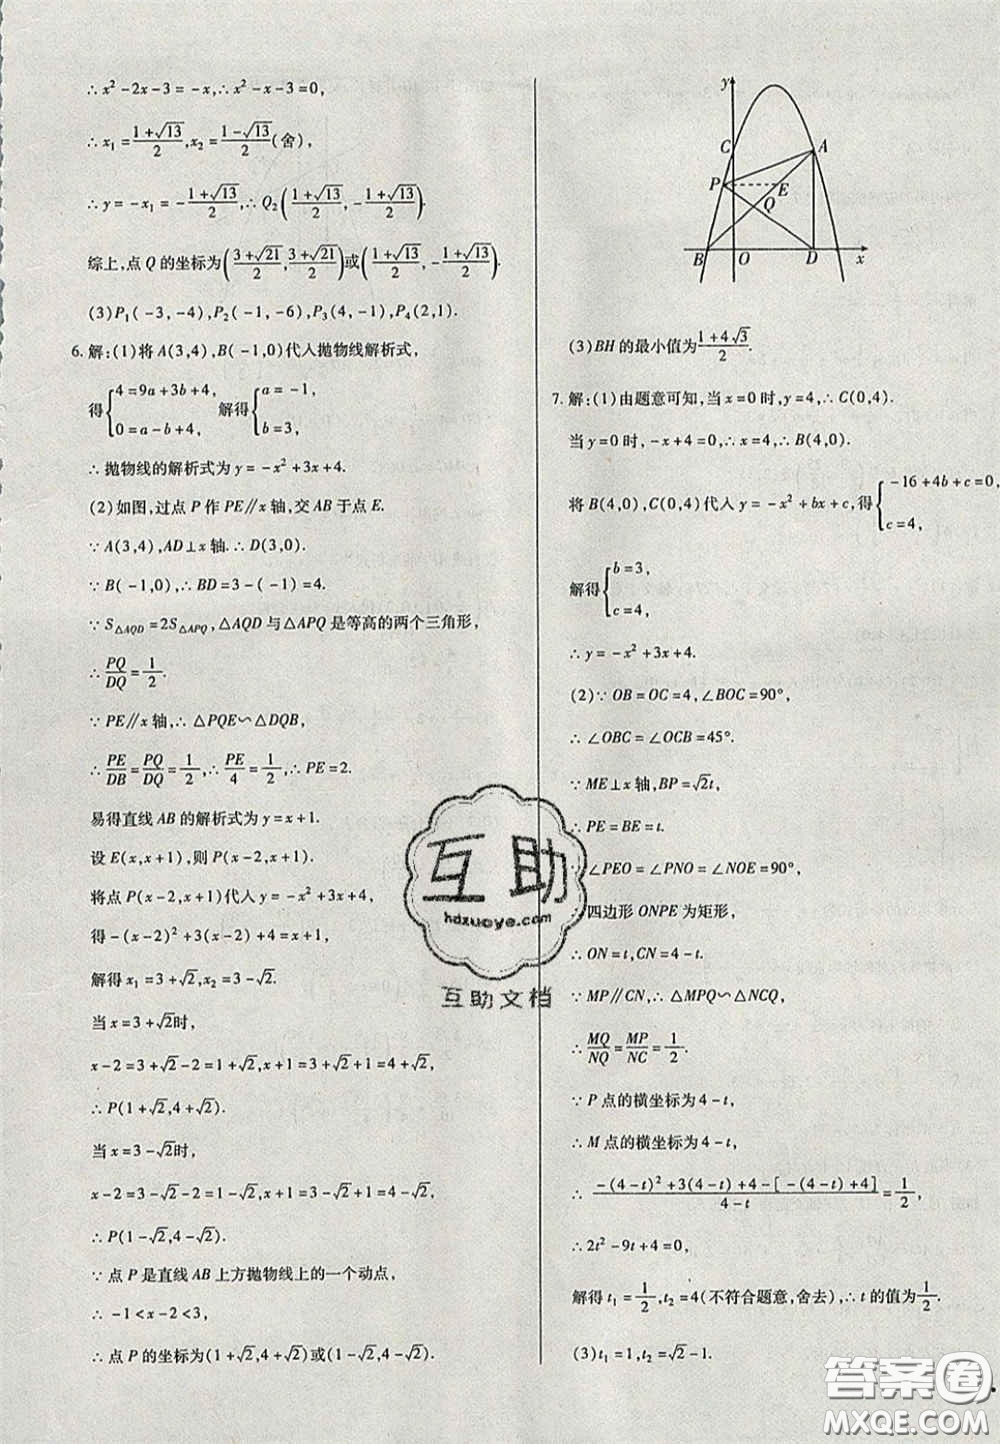 ∴x²-2x-3=-x,∴x²-x-3=0,
∴x₁=(1+√13)/2,x₂=(1-√13)/2(舍),
∴y=-x₁=-(1+√13)/2,∴Q₂((1+√13)/2,-(1+√13)/2).
综上,点Q的坐标为((3+√21)/2,(3+√21)/2)或((1+√13)/2,-(1+√13)/2).
(3)P₁(-3,-4),P₂(-1,-6),P₃(4,-1),P₄(2,1).
6.解:(1)将A(3,4),B(-1,0)代入抛物线解析式,
得{4=9a+3b+4, 0=a-b+4, 解得{a=-1, b=3,
∴抛物线的解析式为y=-x²+3x+4.
(2)如图,过点P作PE∥x轴,交AB于点E.
∵A(3,4),AD⊥x轴.∴D(3,0).
∵B(-1,0),∴BD=3-(-1)=4.
∵S△AQD=2S△APQ,△AQD与△APQ是等高的两个三角形,
∴PQ/DQ=1/2.
∵PE∥x轴,∴△PQE∽△DQB,
∴PE/DB=PQ/DQ=1/2,∴PE/4=1/2,∴PE=2.
易得直线AB的解析式为y=x+1.
设E(x,x+1),则P(x-2,x+1).
将点P(x-2,x+1)代入y=-x²+3x+4,
得-(x-2)²+3(x-2)+4=x+1,
解得x₁=3+√2,x₂=3-√2.
当x=3+√2时,
x-2=3+√2-2=1+√2,x+1=3+√2+1=4+√2,
∴P(1+√2,4+√2).
当x=3-√2时,
x-2=3-√2-2=1-√2,x+1=3-√2+1=4-√2,
∴P(1-√2,4-√2).
∵点P是直线AB上方抛物线上的一个动点,
∴-1<x-2<3,
∴点P的坐标为(1+√2,4+√2)或(1-√2,4-√2).
y
C
A
P
E
Q
B
O
D
x
(3)BH的最小值为(1+4√3)/2.
7.解:(1)由题意可知,当x=0时,y=4,∴C(0,4).
当y=0时,-x+4=0,∴x=4,∴B(4,0).
将B(4,0),C(0,4)代入y=-x²+bx+c,得{-16+4b+c=0, c=4,
解得{b=3, c=4,
∴y=-x²+3x+4.
(2)∵OB=OC=4,∠BOC=90°,
∴∠OBC=∠OCB=45°.
∵ME⊥x轴,BP=√2t,
∴PE=BE=t.
∠PEO=∠PNO=∠NOE=90°,
四边形ONPE为矩形,
∴ON=t,CN=4-t.
∵MP∥CN,∴△MPQ∽△NCQ,
∴MQ/NQ=MP/NC=1/2.
∵P点的横坐标为4-t,
∴M点的横坐标为4-t,
∴(-(4-t)²+3(4-t)+4-[-(4-t)+4])/(4-t)=1/2,
∴2t²-9t+4=0,
解得t₁=1/2,t₂=4(不符合题意,舍去),∴t的值为1/2.
(3)t₁=1,t₂=√2-1.
互助
hdzuoye.com
互助文档
答案圈
MXQE.COM